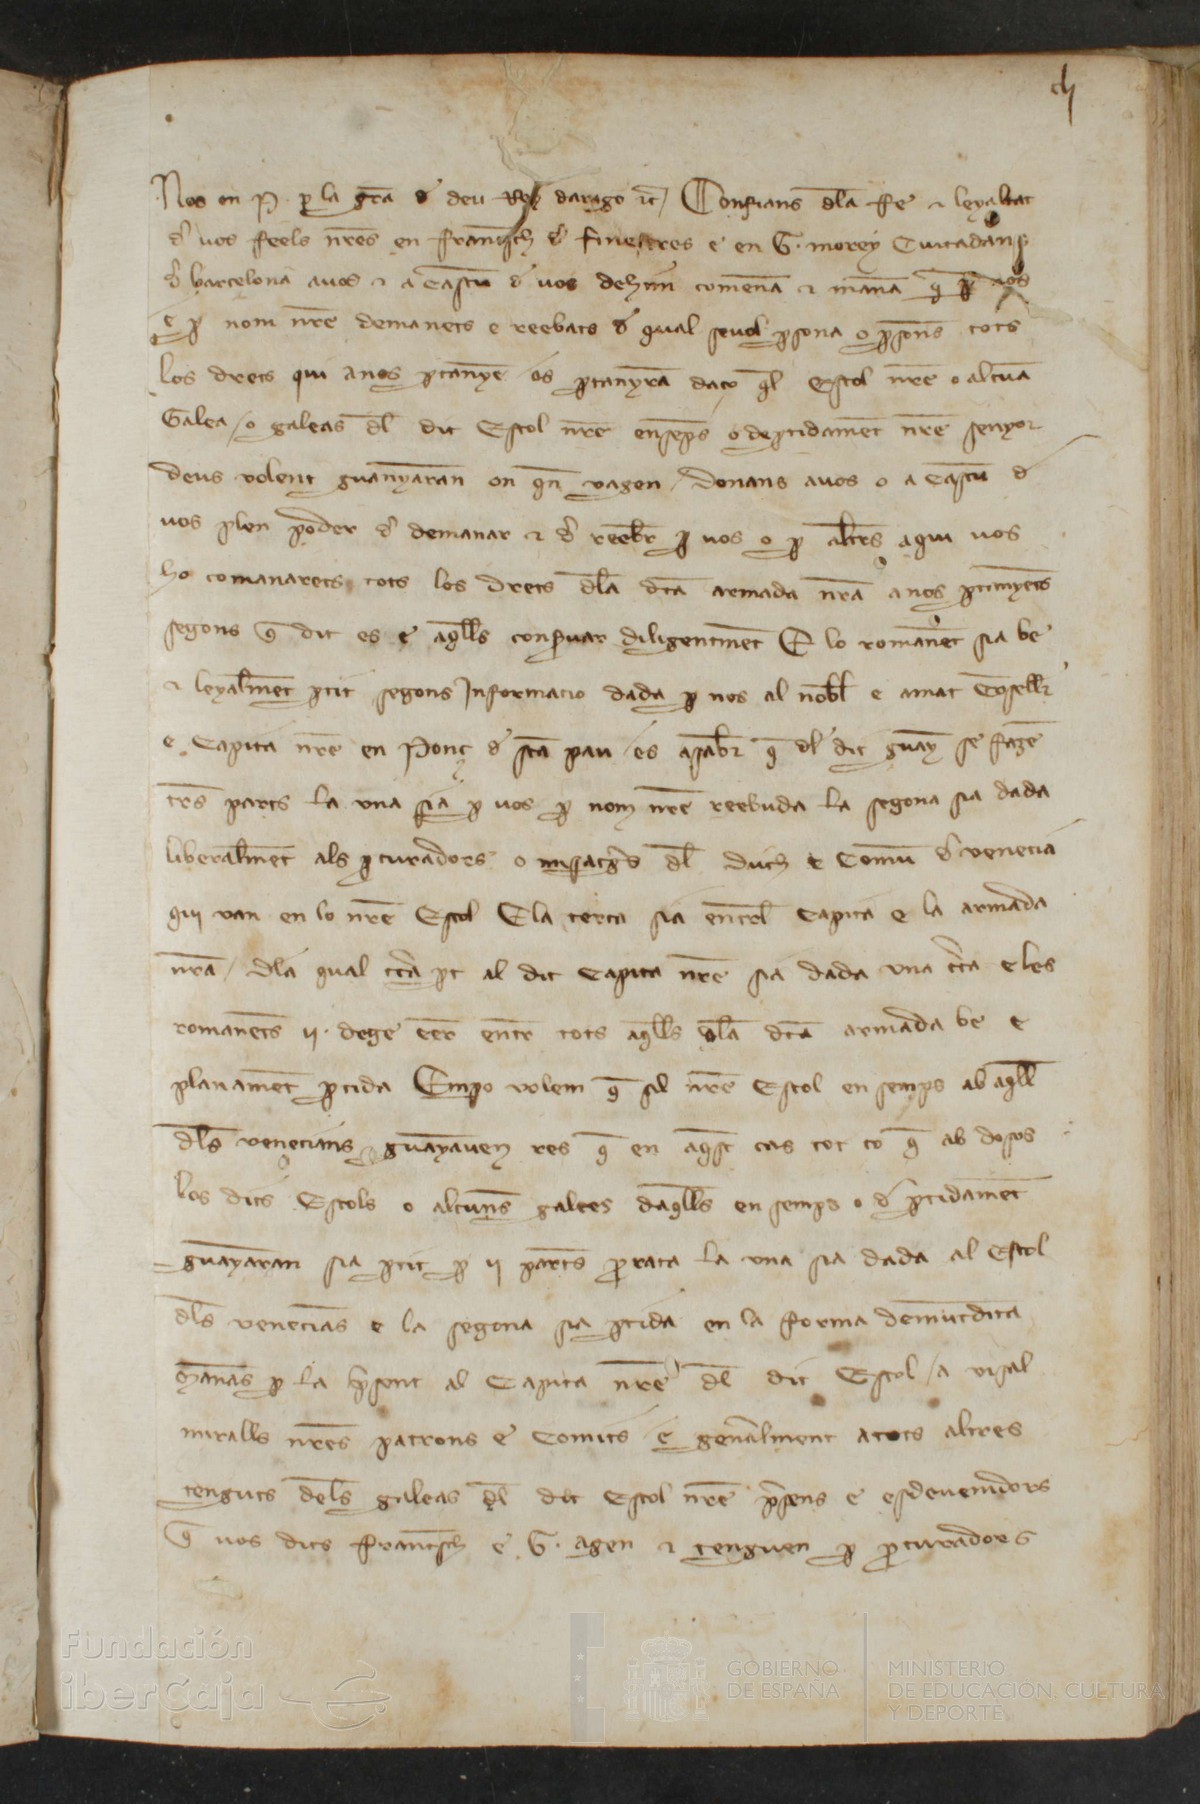 Nos en P. per la gra de deu Rey darago etc / Confians dla fe e leyaltat
de vos feels nres en Francesch de Finestres e en G. morey Ciutadans
de barcelona a vos e a cascu de vos dehim comenam e manam que per nos
e per nom nre demanets e reebats de qual sevol persona o persones tots
los drets qui a nos pertanyen os pertanyran daço quel Estol nre o alcuna
Galea / o galeas del dit Estol nre ensemps o departidament nre senyor
deus volent guanyaran on que vagen / Donans a vos o a cascu de
vos plen poder de demanar e de reebre per vos o per altres a qui vos
ho comanarets tots los drets dla dta armada nra a nos pertanyents
segons que dit es e aquells conservar diligentment E lo romanent sia be
e leyalment partit segons Informacio dada per nos al noble e amat Conseller
e Capita nre en Ponç de sta pau es a saber que del dit guany se facen
tres parts la una sia per vos per nom nre reebuda la segona sia dada
liberalment als procuradors o missatgers del Duch e Comu de venecia
qui van en lo nre Estol E la terça sia entrel Capita e la armada
nra / dla qual terça part al dit Capita nre sia dada una terça e les
romanents ij. dege esser entre tots aquells dla dta armada be e
planament partida Empero volem que sil nre Estol ensemps ab aquell
dels venecians guanyaven res que en aquest cas tot ço que abdosos
los dits Estols o alcunes galees daquells ensemps o departidament
guanyaran sia partit per ij parts pro rata la una sia dada al Estol
dels venecians e la segona sia partida en la forma demuntdita
Manans per la present al Capita nre del dit Estol / a visal
miralls nres patrons e Comits e generalment a tots altres
tenguts de les galeas del dit Estol nre presens e esdevenidors
que vos dits Francesch e G. agen e tenguen per procuradors
Fundación
iberCaja
GOBIERNO
DE ESPAÑA
MINISTERIO
DE EDUCACIÓN, CULTURA
Y DEPORTE